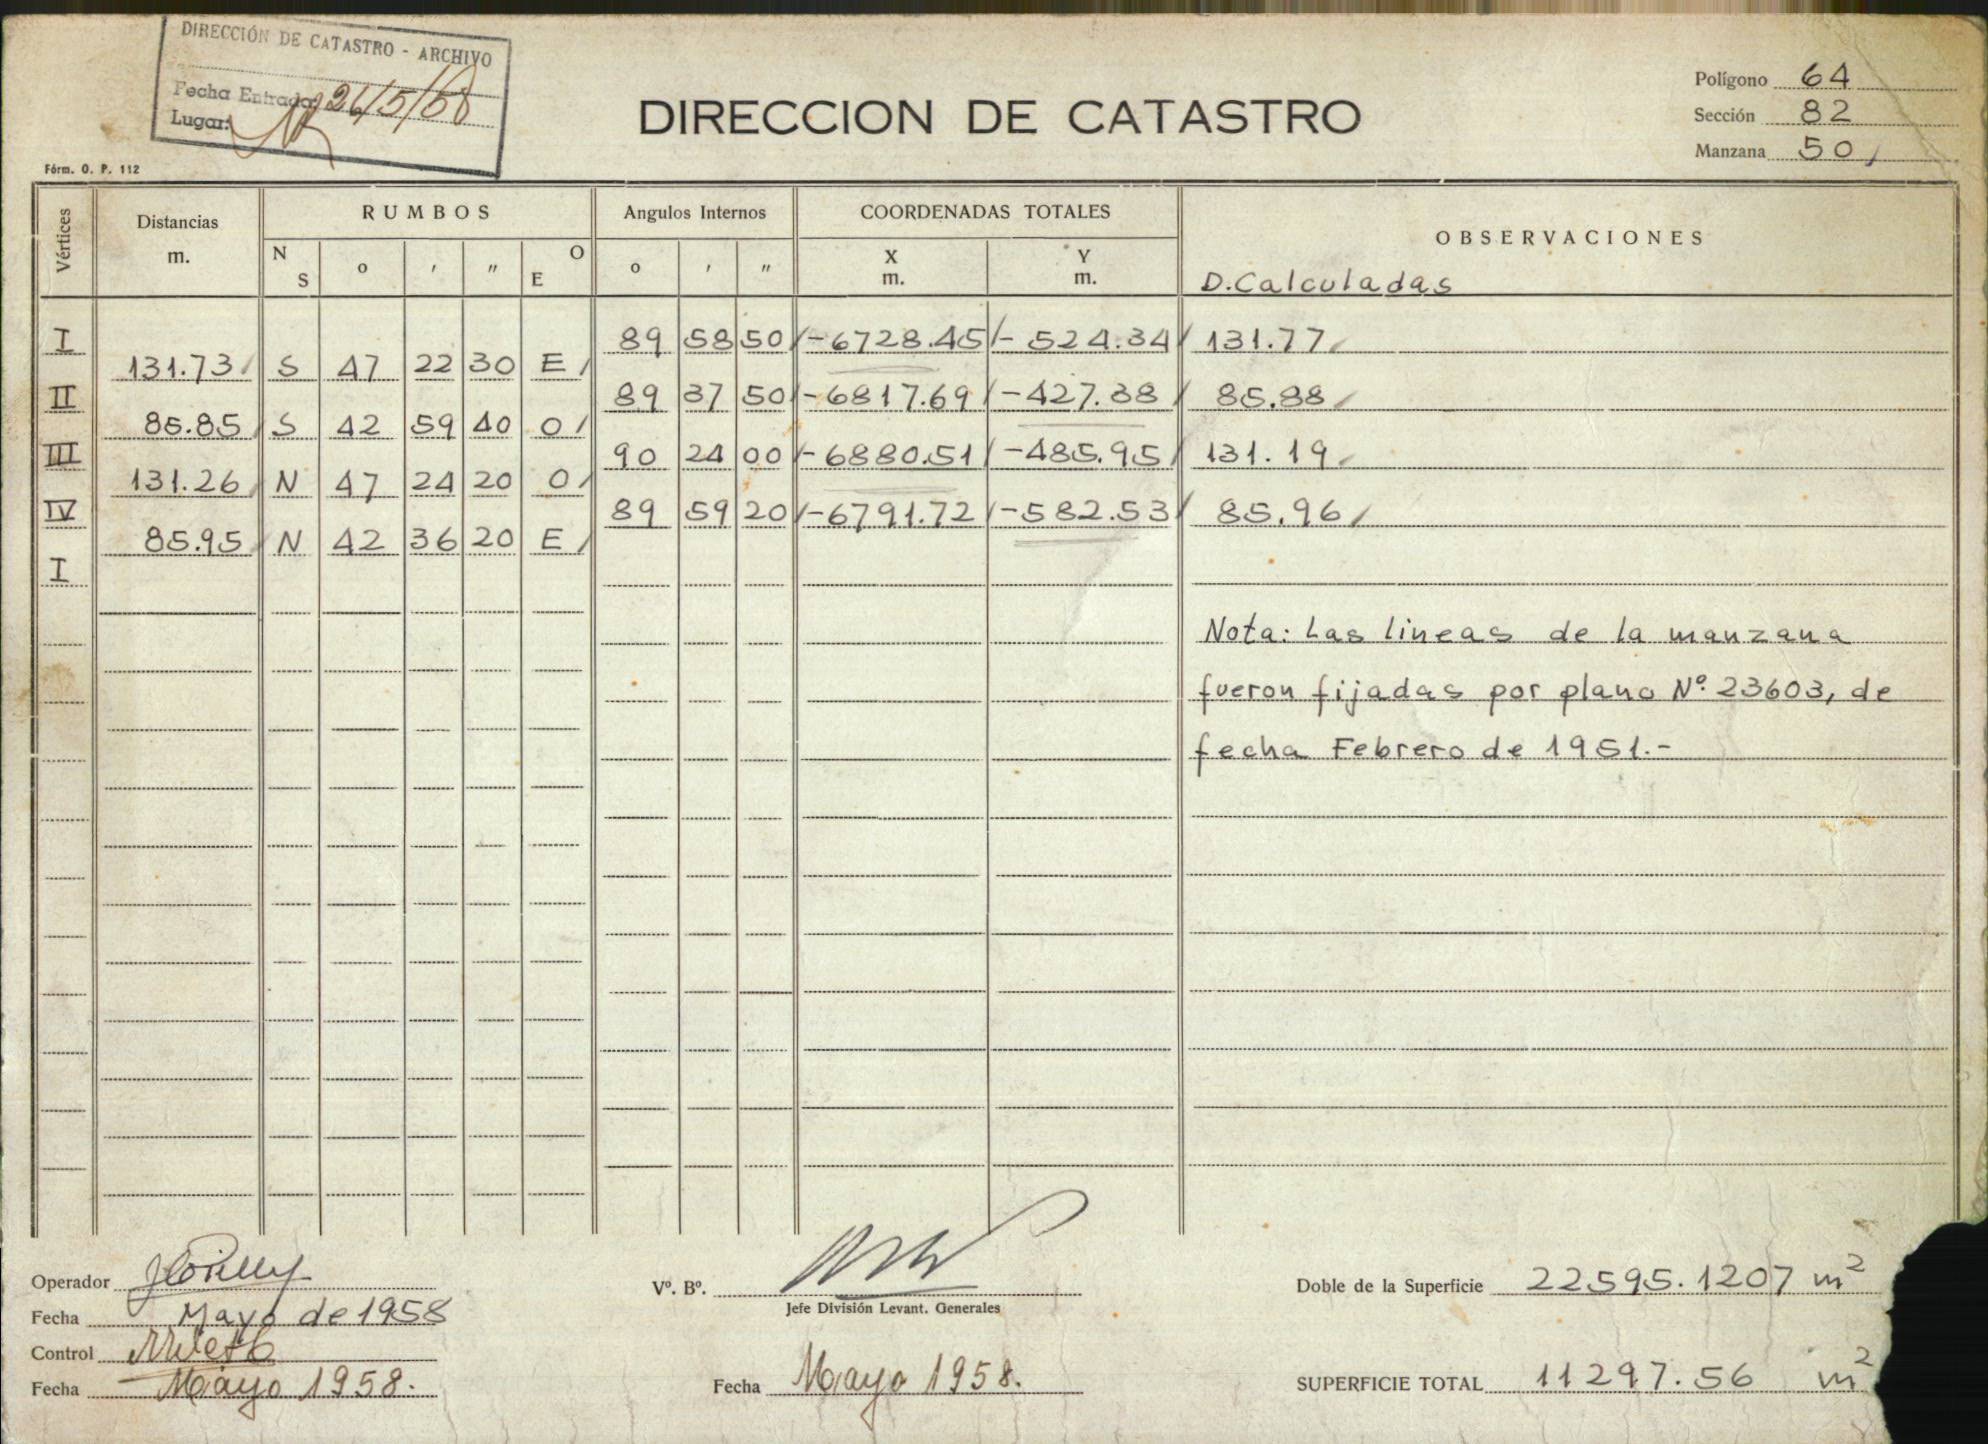 DIRECCIÓN DE CATASTRO - ARCHIVO
Fecha Entrada: 26/5/58
Lugar:
DIRECCION DE CATASTRO
Polígono 64
Sección 82
Manzana 50
Fórm. O. P. 112
Vértices Distancias m. RUMBOS Angulos Internos COORDENADAS TOTALES OBSERVACIONES
N S o ' " O E o ' " X m. Y m. D. Calculadas
I 89 58 50 -6728.45 -524.34 131.77
131.73 S 47 22 30 E
II 89 37 50 -6817.69 -427.38 85.88
85.85 S 42 59 40 O
III 90 24 00 -6880.51 -485.95 131.19
131.26 N 47 24 20 O
IV 89 59 20 -6791.72 -582.53 85.96
85.95 N 42 36 20 E
I
Nota: Las lineas de la manzana
fueron fijadas por plano Nº 23603, de
fecha Febrero de 1951.-
Operador
Fecha Mayo de 1958
Control
Fecha Mayo 1958.
Vº. Bº.
Jefe División Levant. Generales
Fecha Mayo 1958.
Doble de la Superficie 22595.1207 m²
SUPERFICIE TOTAL 11297.56 m²